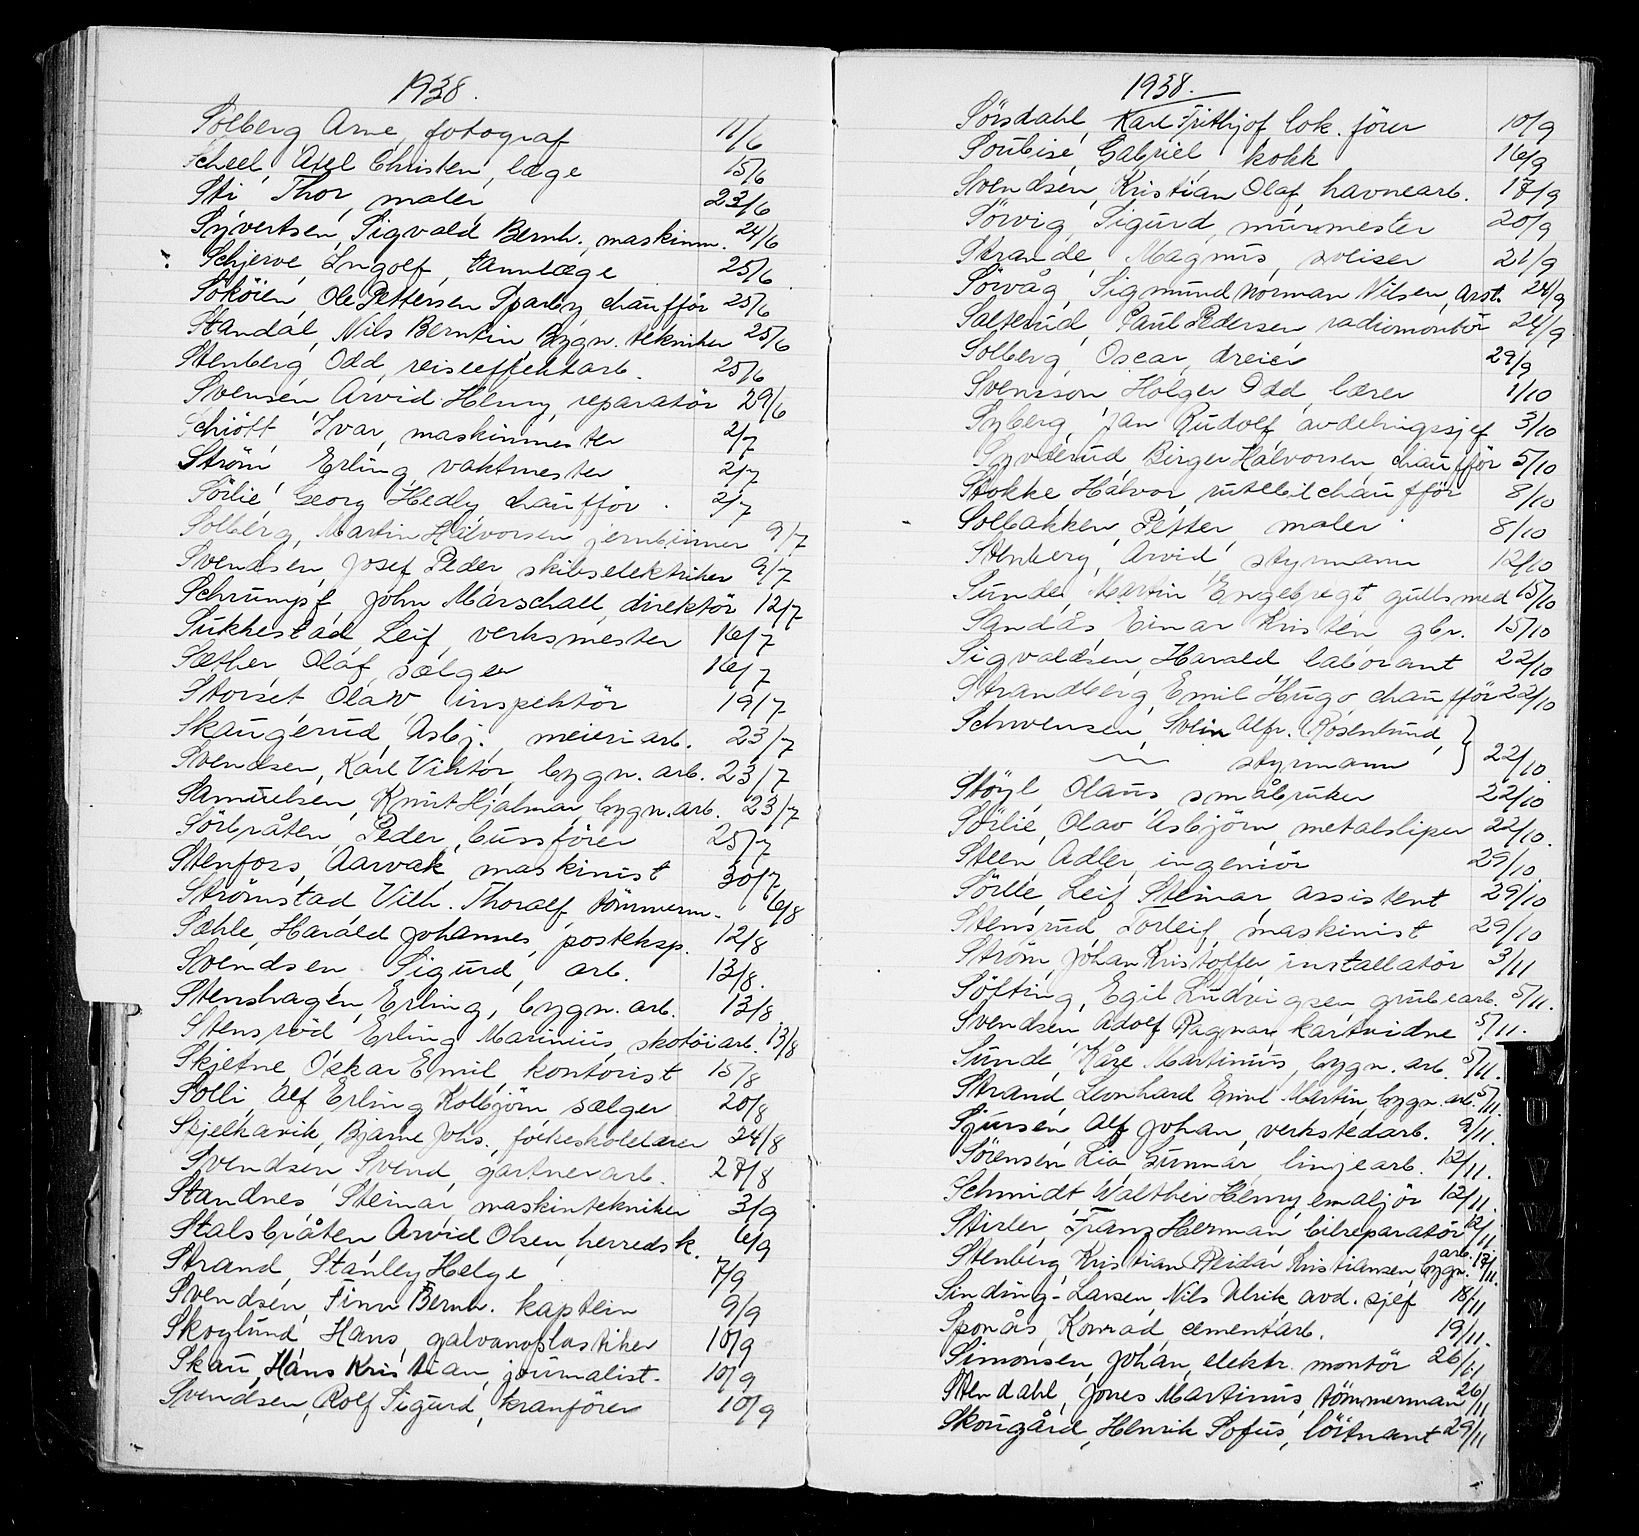 1938.
Solberg Arne, fotograf 11/6
Scheel, Axel Christen, læge 15/6
Sti Thor, maler 23/6
Syvertsen, Sigvald Bernh. maskinm. 24/6
Schjerve, Ingolf, tannlæge 25/6
Soköien Ole Pettersen Sparby chaufför 25/6
Standal, Nils Berntin Bygn. tekniker 25/6
Stenberg Odd, reiseeffektarb. 25/6
Svensen Arvid Henry, reparatör 29/6
Schiött, Ivar, maskinmester 2/7
Ström Erling vaktmester 2/7
Sörlie, Georg Hedly chaufför. 2/7
Solberg, Martin Halvorsen jernbinner 9/7
Svendsen Josef Peder, skibselektriker 9/7
Schrumpf, John Marschall, direktör 12/7
Sukkestad Leif, verksmester 16/7
Sæther Olaf, sælger 16/7
Storset Olav, inspektör 19/7
Skaugerud, Asbj. meieriarb. 23/7
Svendsen, Karl Viktor, bygn. arb. 23/7
Samuelsen, Knut Hjalmar, bygn. arb. 23/7
Sörbråten, Peder, bussförer 25/7
Stenfors, Aarvak, maskinist 30/7
Strömstad Vilh. Thoralf, tömmerm. 6/8
Sæhle, Harald Johannes, posteksp. 12/8
Svendsen Sigurd, arb. 13/8.
Stenshagen, Erling, bygn. arb. 13/8
Stensröd Erling Marinius, skotöiarb. 13/8
Skjetne Oskar Emil, kontorist 15/8
Solli, Alf Erling Kolbjörn sælger 20/8
Skjelkavik, Bjarne Johs., folkeskolelærer 24/8
Svendsen Svend, gartnerarb. 27/8
Standnes, Steinar, maskintekniker 3/9
Stalsbråten Arvid Olsen, herredsk. 6/9
Strand, Stanley Helge 7/9
Svendsen, Finn Bernh. kaptein 9/9
Skoglund, Hans, galvanoplastiker 10/9
Skau, Hans Kristian, journalist. 10/9
Svendsen, Rolf Sigurd, kranförer 10/9
1938.
Sörsdahl, Karl Frithjof, lok. förer 10/9
Soubise, Gabriel, kokk 16/9
Svendsen, Kristian Olaf, havnearb. 17/9
Sörvig, Sigurd, murmester 20/9
Strande, Magnus, sveiser 21/9
Sörvåg, Sigmund Norman Nilsen, Arst. 24/9
Salterud, Paul Pedersen radiomontör 24/9
Solberg, Oscar, dreier 29/9
Svensson Holger Odd, lærer 1/10
Syberg, Jan Rudolf avdelingssjef 3/10
Syvderud Birger Halvorsen, chaufför 5/10
Stokke Halvor rutebilchaufför 8/10
Solbakken, Petter, maler 8/10
Stenberg, Arvid, styrmann 12/10
Sunde, Martin Engebregt gullsmed 15/10
Sandås, Einar Kristen gbr. 15/10
Sigvaldsen, Harald laborant 22/10
Strandberg, Emil Hugo, chaufför 22/10
Schwensen, Svein Alfr. Rosenlund,
styrmann 22/10.
Stöyl, Olaus småbruker 22/10
Sörlie, Olav Asbjörn, metalsliper 22/10.
Steen, Adler, ingeniör 29/10.
Sörlie, Leif Steinar assistent 29/10
Stensrud, Torleif, maskinist 29/10
Ström, Johan Kristoffer, installatör 3/11
Söfting, Egil Ludvigsen grubearb. 5/11.
Svendsen Adolf Ragnar kartvidne 5/11.
Sunde, Kåre Martinus, bygn. arb. 5/11.
Strand, Leonhard Emil Martin, bygn. arb. 5/11.
Sjursen, Alf Johan, verkstedarb. 9/11.
Sörensen, Lia Gunnar, linjearb. 12/11.
Schmidt, Walther Henry, emaljör 12/11.
Stirler, Franz Herman, bilreparatör 12/11
Stenberg, Kristian Reidar Kristiansen, bygn. arb. 17/11.
Sinding-Larsen, Nils Ulrik avd. sjef 18/11
Sponås, Konrad, cementarb. 19/11.
Simonsen, Johan, elektr. montör 26/11
Stendahl, Jones Martinus, tömmerman 26/11
Skougård, Henrik Sofus, löitnant 29/11
T
U
V
W
X
Y